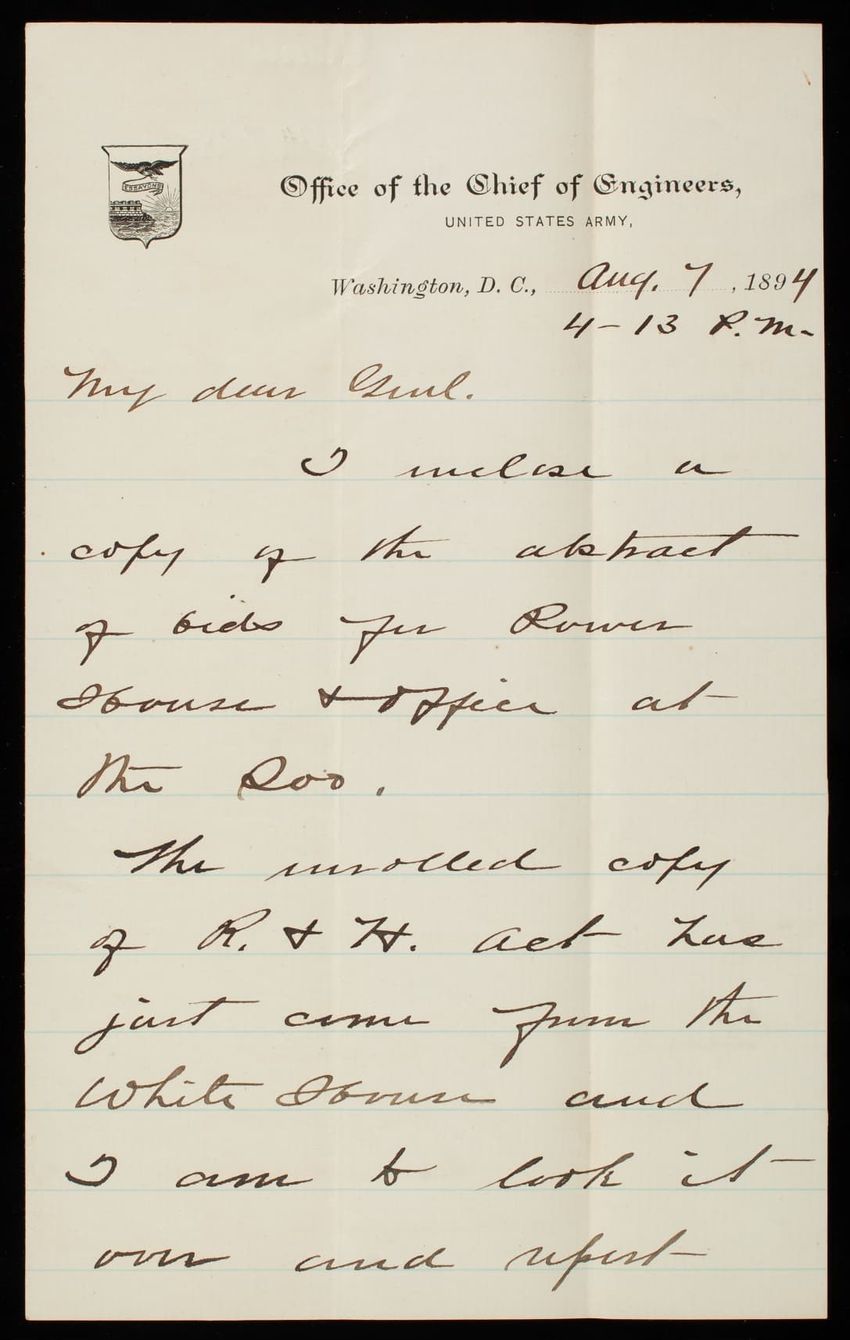 ESSAYONS
Office of the Chief of Engineers,
UNITED STATES ARMY,
Washington, D. C., Aug. 7, 1894
4-13 P.M.
My dear Genl.
I inclose a
copy of the abstract
of bids for Power
House & Office at
the Soo.
The enrolled copy
of R. & H. Act has
just come from the
White House and
I am to look it
over and report